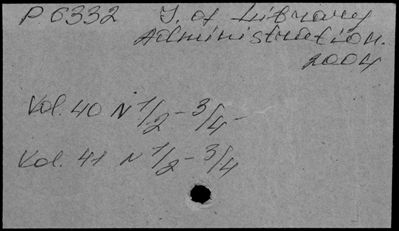 P 6332 J. of Library
Administration.
2004
Vol. 40 N 1/2 - 3/4 -
Vol. 41 N 1/2 - 3/4